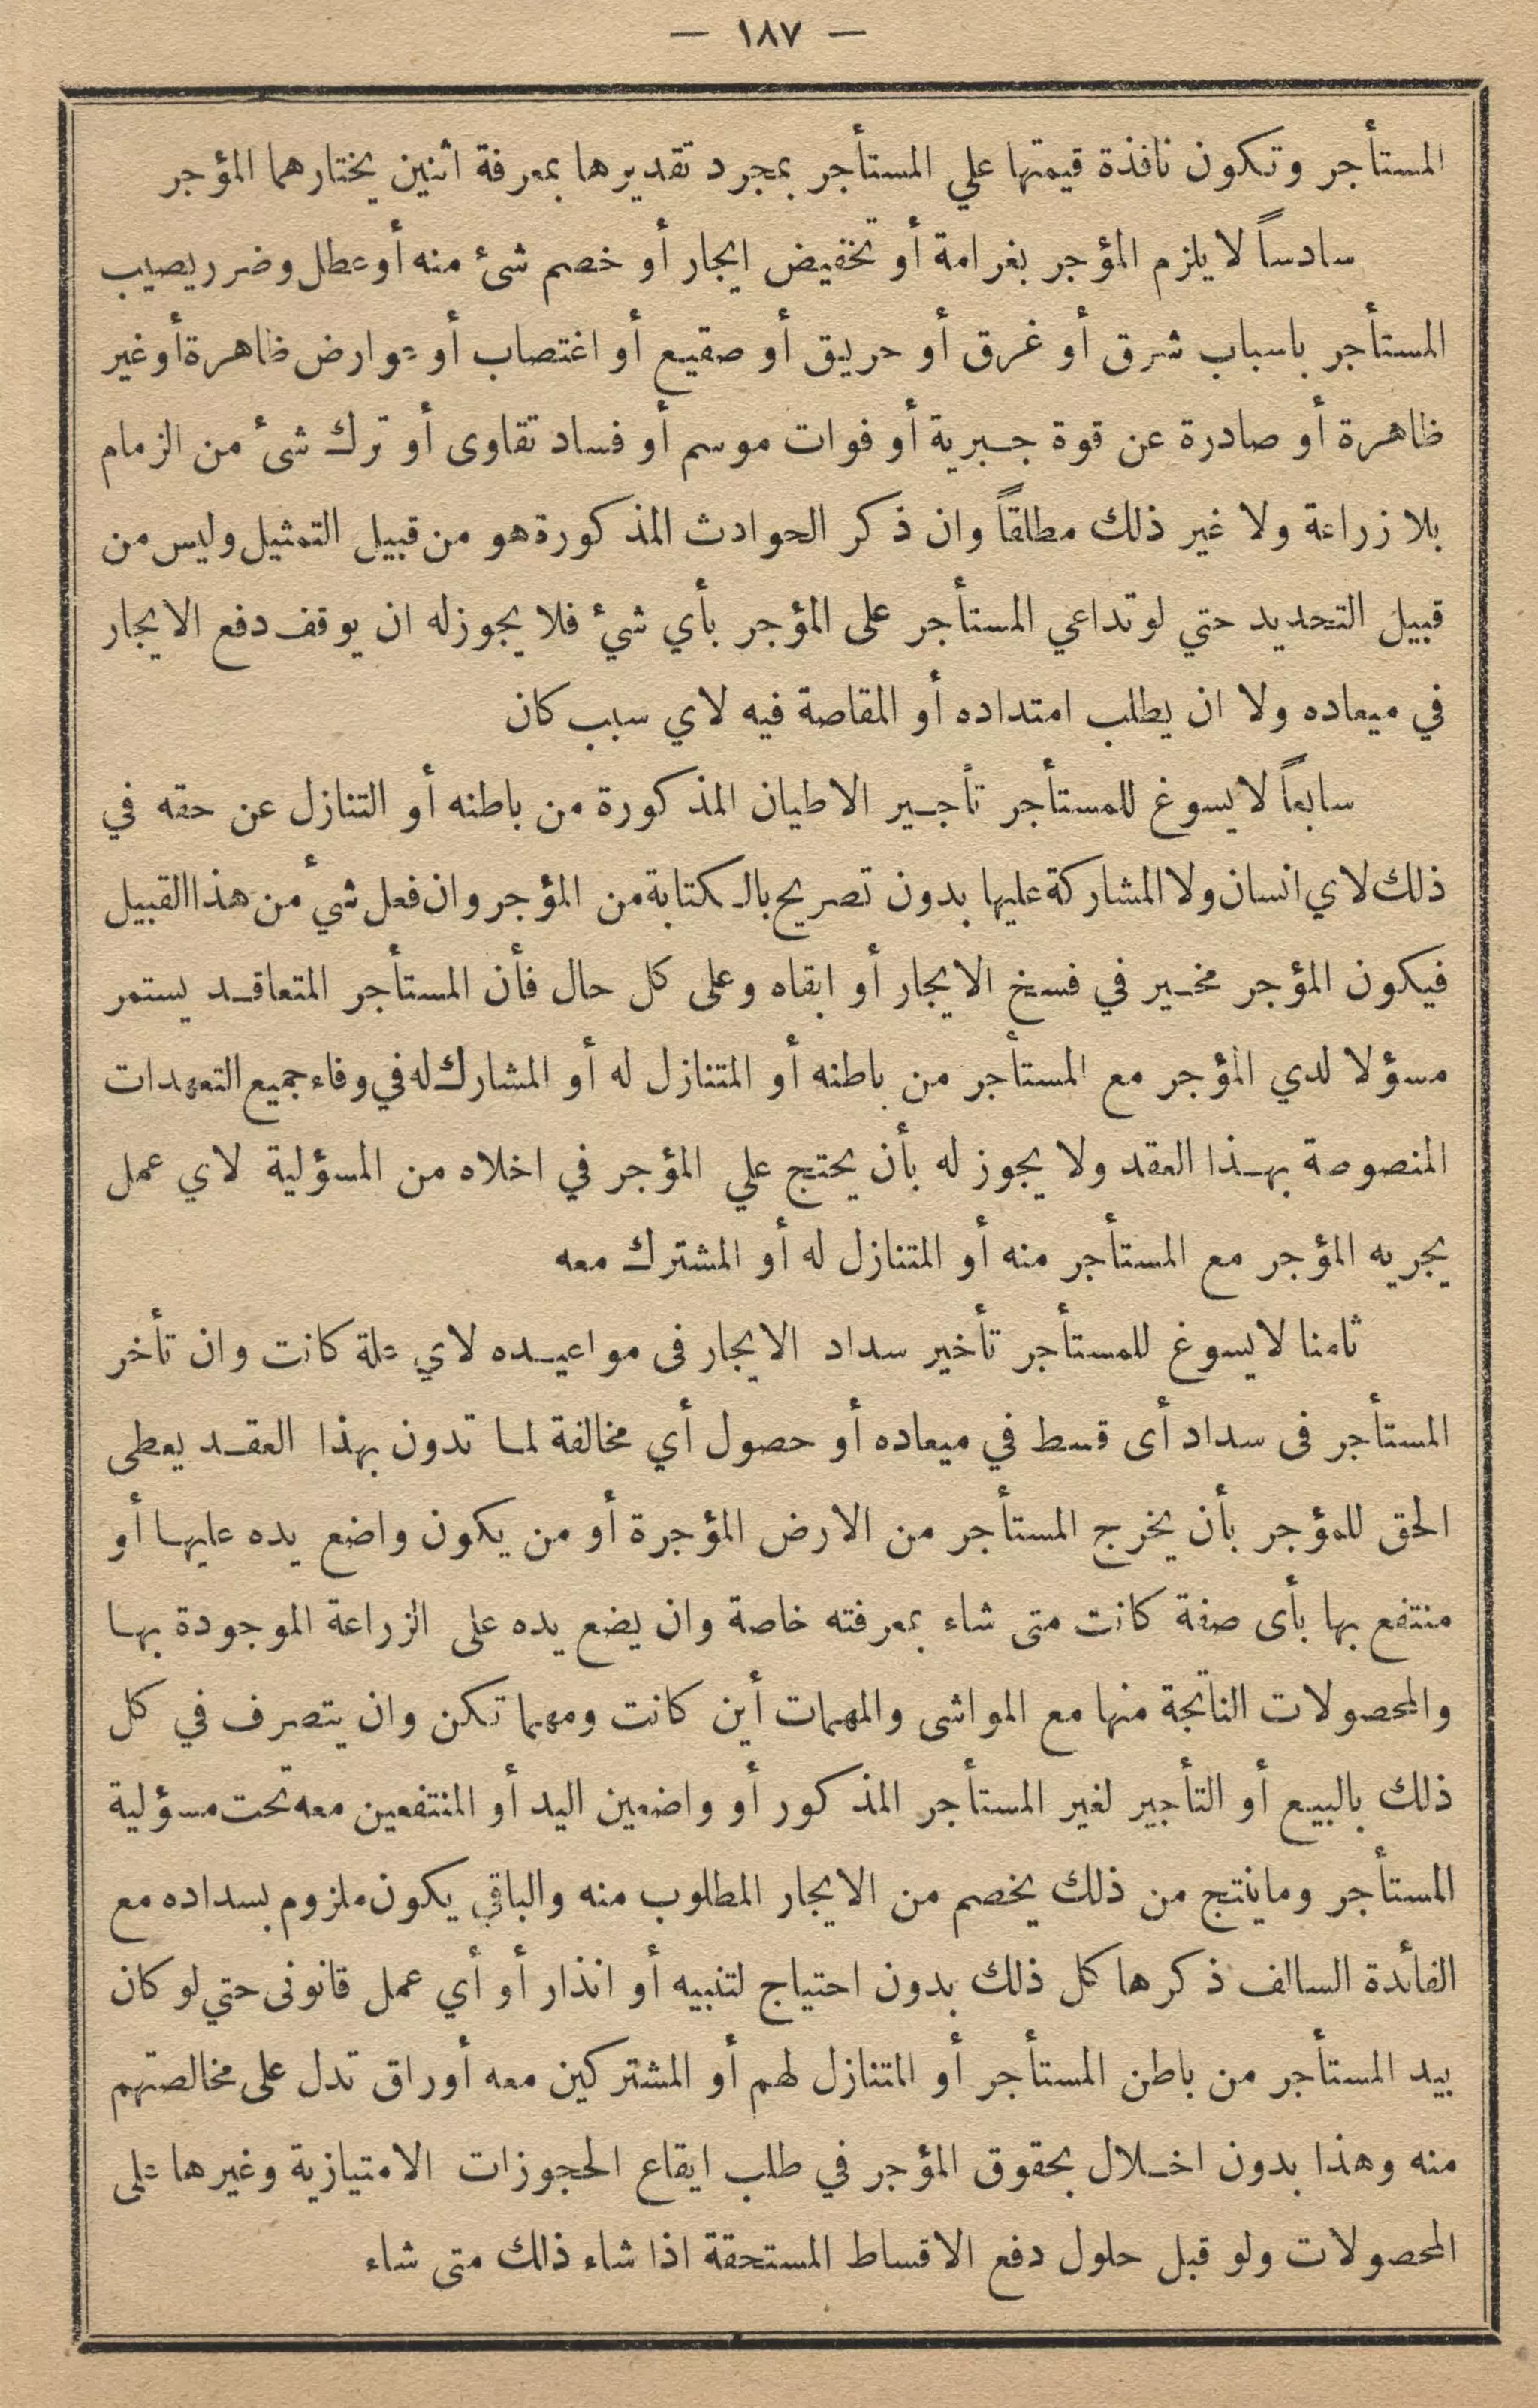 — ١٨٧ —
المستأجر وتكون نافذة قيمتها علي المستأجر بمجرد تقديرها بمعرفة اثنين يختارهما المؤجر
سادساً لا يلزم المؤجر بغرامة أو تخفيض ايجار أو خصم شئ منه أو عطل وضرر يصيب
المستأجر باسباب شرق أو غرق أو حريق أو صقيع أو اغتصاب أو عوارض ظاهرة أو غير
ظاهرة أو صادرة عن قوة جبرية أو فوات موسم أو فساد تقاوى أو ترك شئ من الزمام
بلا زراعة ولا غير ذلك مطلقاً وان ذكر الحوادث المذكورة هو من قبيل التمثيل وليس من
قبيل التحديد حتي لو تداعي المستأجر على المؤجر بأي شئ فلا يجوز له ان يوقف دفع الايجار
في ميعاده ولا ان يطلب امتداده أو المقاصة فيه لاي سبب كان
سابعاً لا يسوغ للمستأجر تأجير الاطيان المذكورة من باطنه أو التنازل عن حقه في
ذلك لاي انسان ولا المشاركة عليها بدون تصريح بالكتابة من المؤجر وان فعل شئ من هذا القبيل
فيكون المؤجر مخير في فسخ الايجار أو ابقاه وعلى كل حال فأن المستأجر المتعاقد يستمر
مسؤلا لدي المؤجر مع المستأجر من باطنه أو المتنازل له أو المشارك له في وفاء جميع التعهدات
المنصوصة بهذا العقد ولا يجوز له بأن يحتج علي المؤجر في اخلاه من المسؤلية لاي عمل
يجريه المؤجر مع المستأجر منه أو المتنازل له أو المشترك معه
ثامنا لا يسوغ للمستأجر تأخير سداد الايجار فى مواعيده لاي علة كانت وان تأخر
المستأجر فى سداد أى قسط في ميعاده أو حصول أي مخالفة لما تدون بهذا العقد يعطى
الحق للمؤجر بأن يخرج المستأجر من الارض المؤجرة أو من يكون واضع يده عليها أو
منتفع بها بأى صفة كانت متى شاء بمعرفته خاصة وان يضع يده على الزراعة الموجودة بها
والمحصولات الناتجة منها مع المواشى والمهمات أين كانت ومهما تكن وان يتصرف في كل
ذلك بالبيع أو التأجير لغير المستأجر المذكور أو واضعين اليد أو المنتفعين معه تحت مسؤلية
المستأجر وما ينتج من ذلك يخصم من الايجار المطلوب منه والباقي يكون ملزوم بسداده مع
الفائدة السالف ذكرها كل ذلك بدون احتياج لتنبيه أو انذار أو أي عمل قانونى حتي لو كان
بيد المستأجر من باطن المستأجر أو المتنازل لهم أو المشتركين معه أوراق تدل على مخالصتهم
منه وهذا بدون اخلال بحقوق المؤجر في طلب ايقاع الحجوزات الامتيازية وغيرها على
المحصولات ولو قبل حلول دفع الاقساط المستحقة اذا شاء ذلك متى شاء